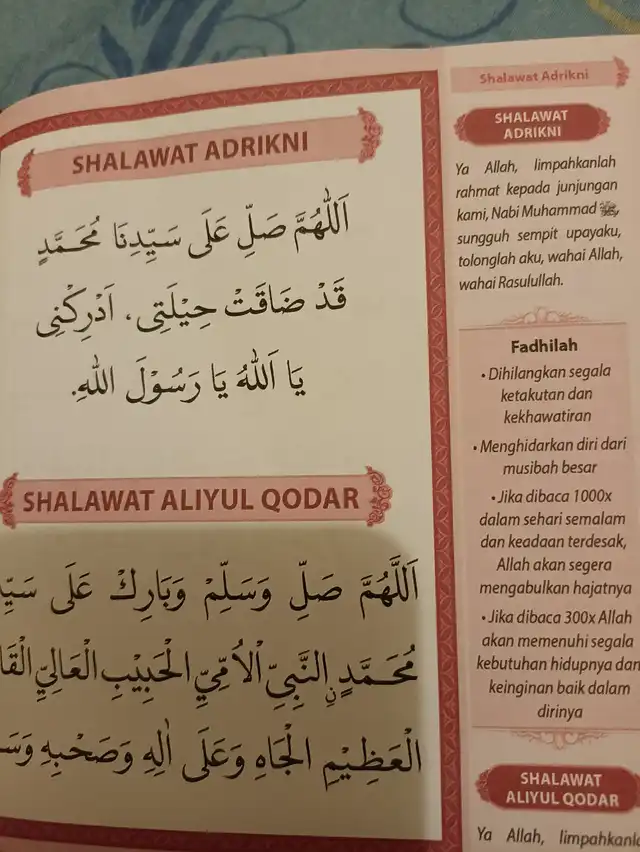 Shalawat Adrikni
SHALAWAT ADRIKNI
اَللّٰهُمَّ صَلِّ عَلَى سَيِّدِنَا مُحَمَّدٍ
قَدْ ضَاقَتْ حِيْلَتِى، اَدْرِكْنِى
يَا اَللهُ يَا رَسُوْلَ اللهِ.
SHALAWAT ALIYUL QODAR
اَللَّهُمَّ صَلِّ وَسَلِّمْ وَبَارِكْ عَلَى
مُحَمَّدٍ نِالنَّبِيِّ الْأُمِّيِّ الْحَبِيْبِ الْعَالِيِّ
الْعَظِيْمِ الْجَاهِ وَعَلَى اٰلِهِ وَصَحْبِهِ
SHALAWAT
ADRIKNI
Ya Allah, limpahkanlah
rahmat kepada junjungan
kami, Nabi Muhammad ﷺ,
sungguh sempit upayaku,
tolonglah aku, wahai Allah,
wahai Rasulullah.
Fadhilah
• Dihilangkan segala
ketakutan dan
kekhawatiran
• Menghidarkan diri dari
musibah besar
• Jika dibaca 1000x
dalam sehari semalam
dan keadaan terdesak,
Allah akan segera
mengabulkan hajatnya
• Jika dibaca 300x Allah
akan memenuhi segala
kebutuhan hidupnya dan
keinginan baik dalam
dirinya
SHALAWAT
ALIYUL QODAR
Ya Allah,